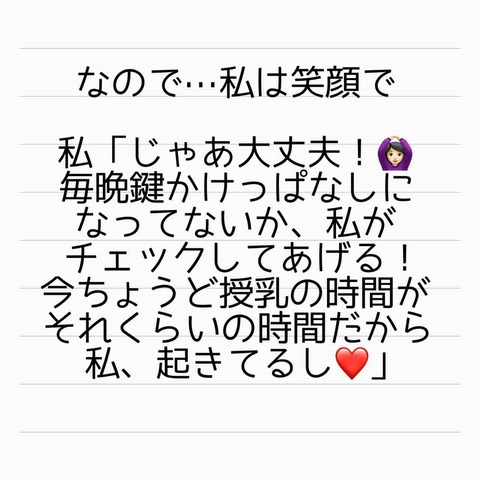 なので…私は笑顔で
私「じゃあ大丈夫！🙆🏻‍♀️
毎晩鍵かけっぱなしに
なってないか、私が
チェックしてあげる！
今ちょうど授乳の時間が
それくらいの時間だから
私、起きてるし❤️」